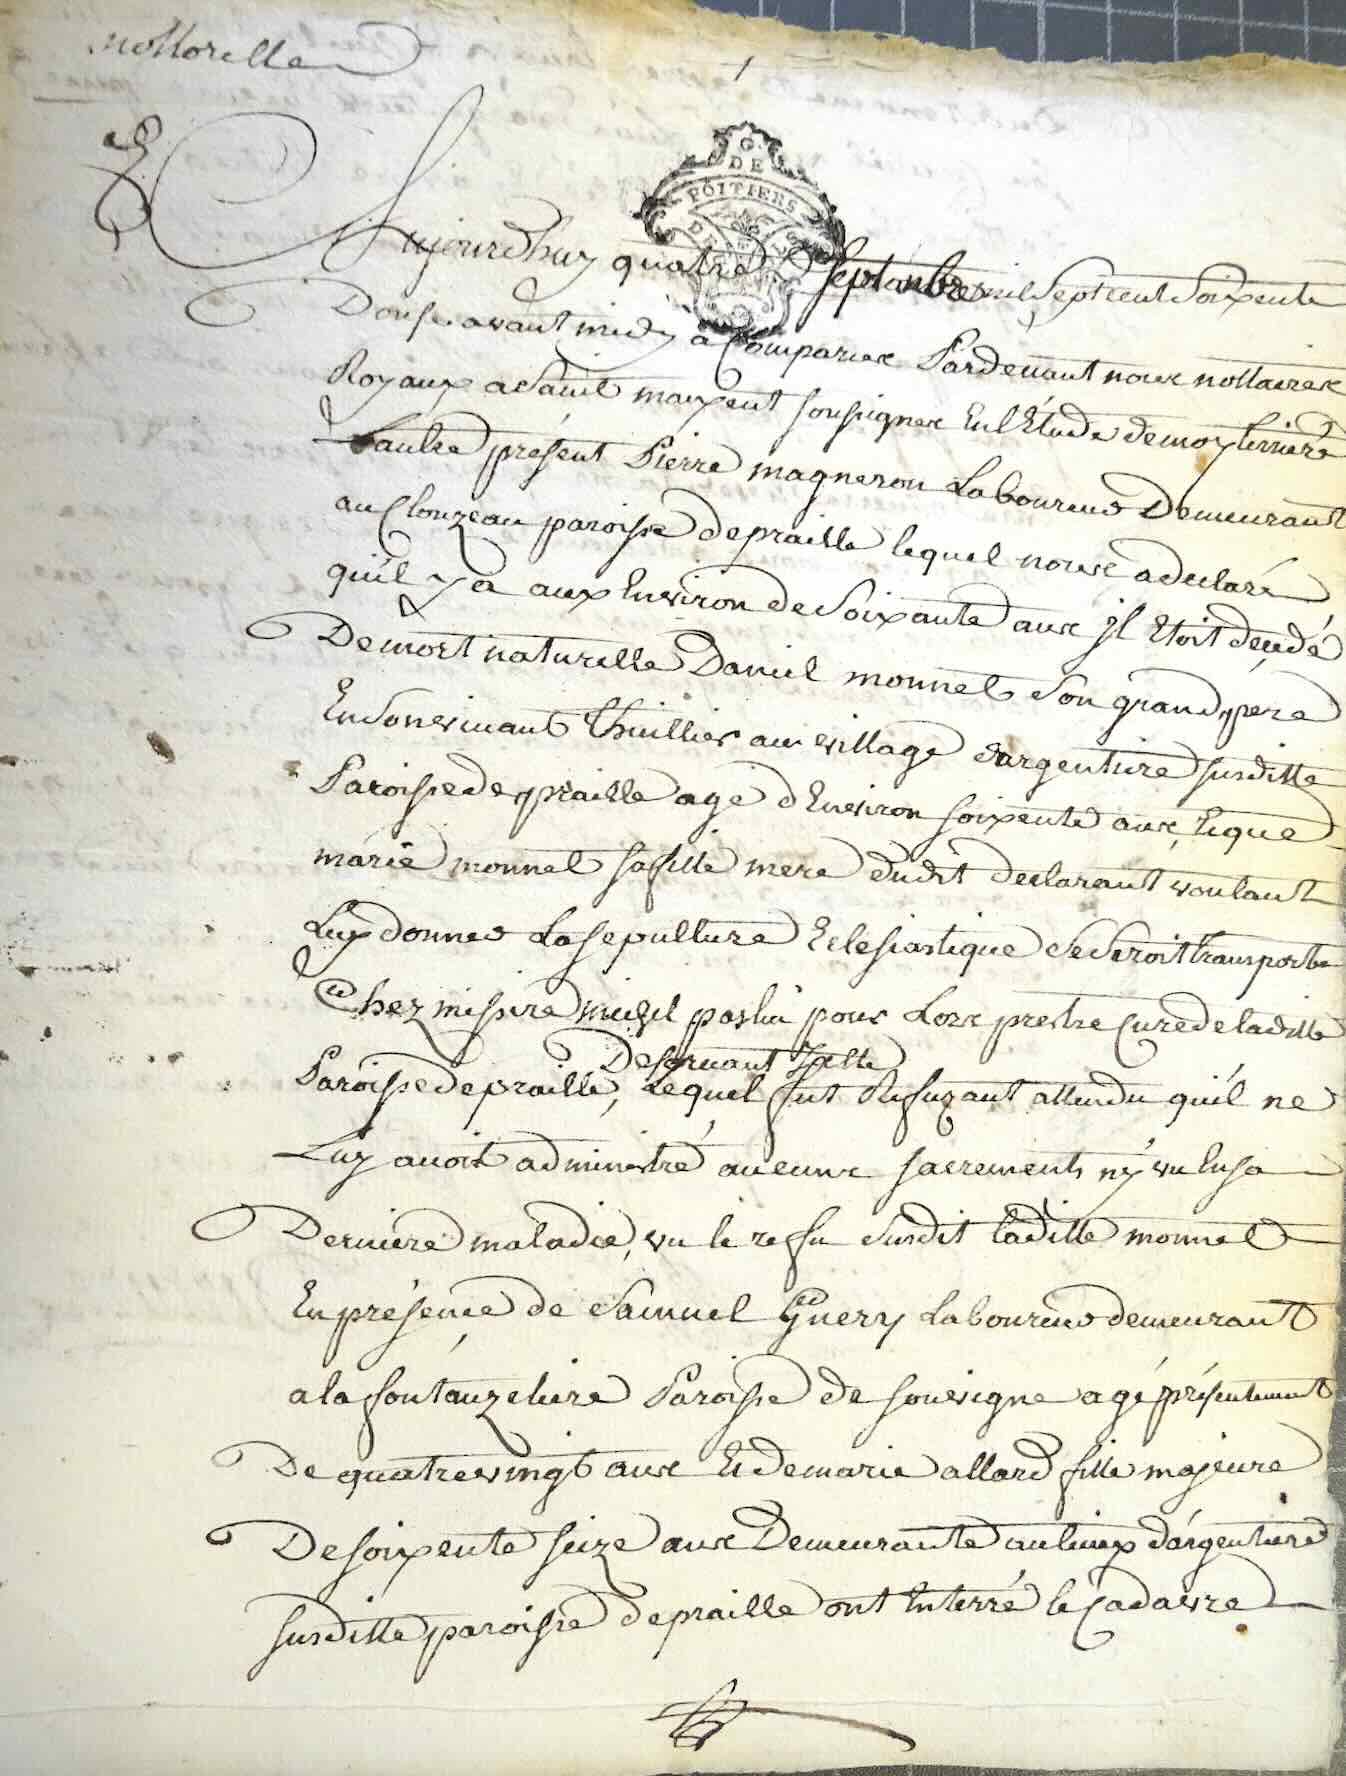 nottorelle
1
G. DE
POITIERS
Aujourdhuy quatre Septambre mil Sept cent Soixente
Douse avant midy a Comparue Pardevant nous nottaires
Royaux a Saint maixent sousignes En l'Étude de moy
L'autre présent Pierre magneron Laboureur Demeurant
au Clouzeau paroisse de praille lequel nous a déclaré
qu'il y a aux Environ de Soixante ans jl Etoit décédé
De mort naturelle Daniel monnet Son grand père
En Son vivant Thuillier au village d'argentiere susditte
Paroisse de praille agé d'Environ soixente ans, Et que
marie monnet sa fille mere dudit declarant voulant
Luy donner La sepulture Eclesiastique Se Seroit transporte
Chez missire michel pour Lors prestre Curé de laditte
Desservant Jcelle
Paroisse de praille, Lequel fut Refuzant attendu qu'il ne
Luy avoit administré aucuns sacrements ny vu En sa
Derniere maladie, vu le refu Susdit laditte monnet
En présence de Samuel Guery Laboureur demeurant
a la fontauzeliere Paroisse de souvigne agé présentement
De quatrevingt ans Et de marie allard fille majeure
De soixente seize ans Demeurante au lieux d'argentiere
susditte paroisse de praille ont Enterré le Cadavre